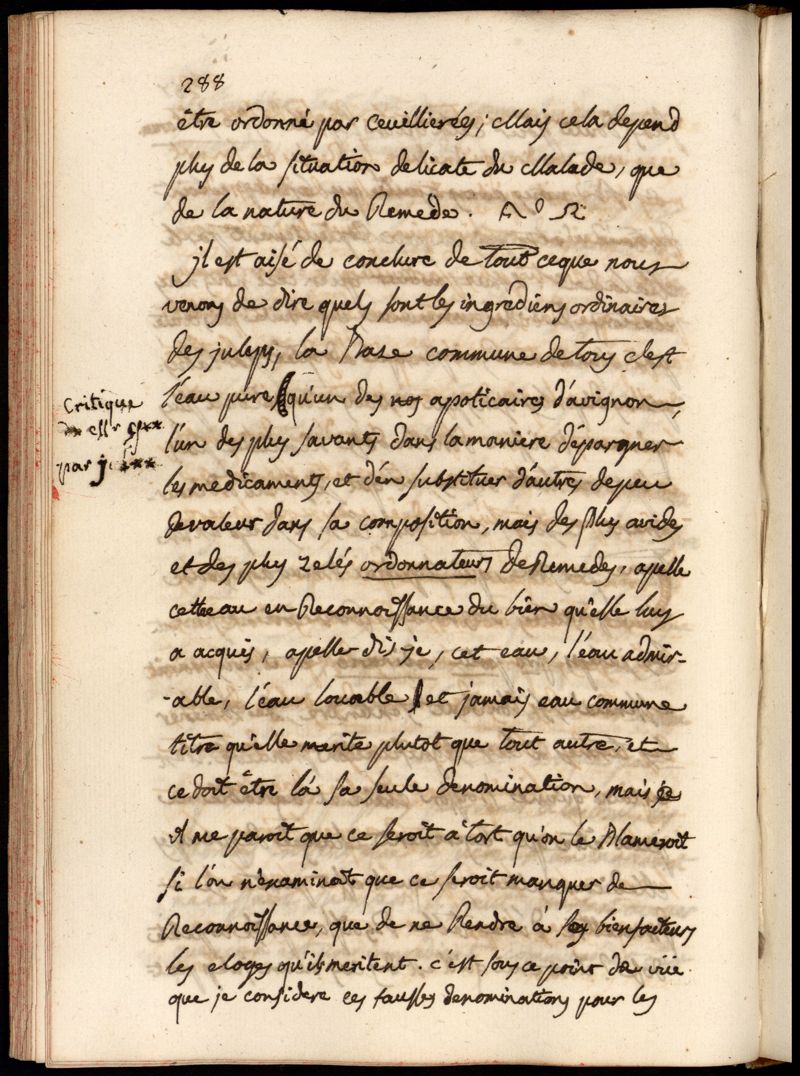 288
être ordonné par ceuillierées; Mais cela depend
plus de la situation delicate du Malade, que
de la nature du Remede.
jl est aisé de conclure de tout ceque nous
venons de dire quels sont les ingrediens ordinaires
des juleps, la Base commune de tous c'est
l'eau pure qu'un des nos apoticaires d'avignon,
l'un des plus savants dans la maniere d'épargner
les medicaments, et d'én substituer d'autres de peu
de valeur dans sa composition, mais des plus avides
et des plus zelés ordonnateurs de Remedes, apelle
cette eau en Reconnoissance du bien qu'elle luy
a acquis, apelle-dis-je, cet eau, l'éau admir-
-able, l'éau louable et jamais eau commune
titre qu'elle merite plutot que tout autre, et
ce doit être lá sa seule denomination, mais
il me paroit que ce seroit à tort qu'on le Blameroit
si l'on n'examinoit que ce seroit manquer de
Reconnoissance, que de ne Rendre à ses bienfacteurs
les eloges qu'ils meritent. c'est sous ce point de vüe
que je considere ces fausses denominations pour les
Critique
de Mr
par